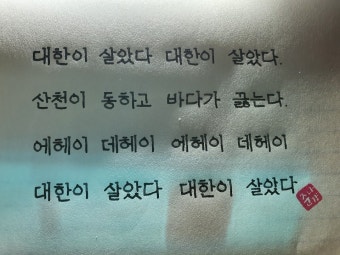 대한이 살았다 대한이 살았다.
산천이 동하고 바다가 끓는다.
에헤이 데헤이 에헤이 데헤이
대한이 살았다 대한이 살았다